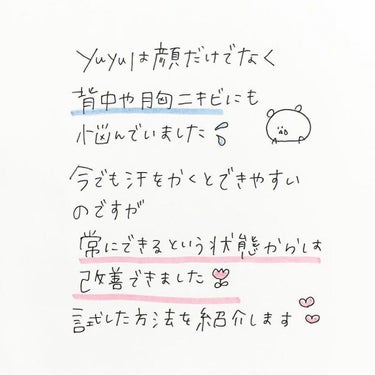 yuyuは顔だけでなく
背中や胸ニキビにも
悩んでいました
今でも汗をかくとできやすい
のですが
常にできるという状態からは
改善できました
試した方法を紹介します